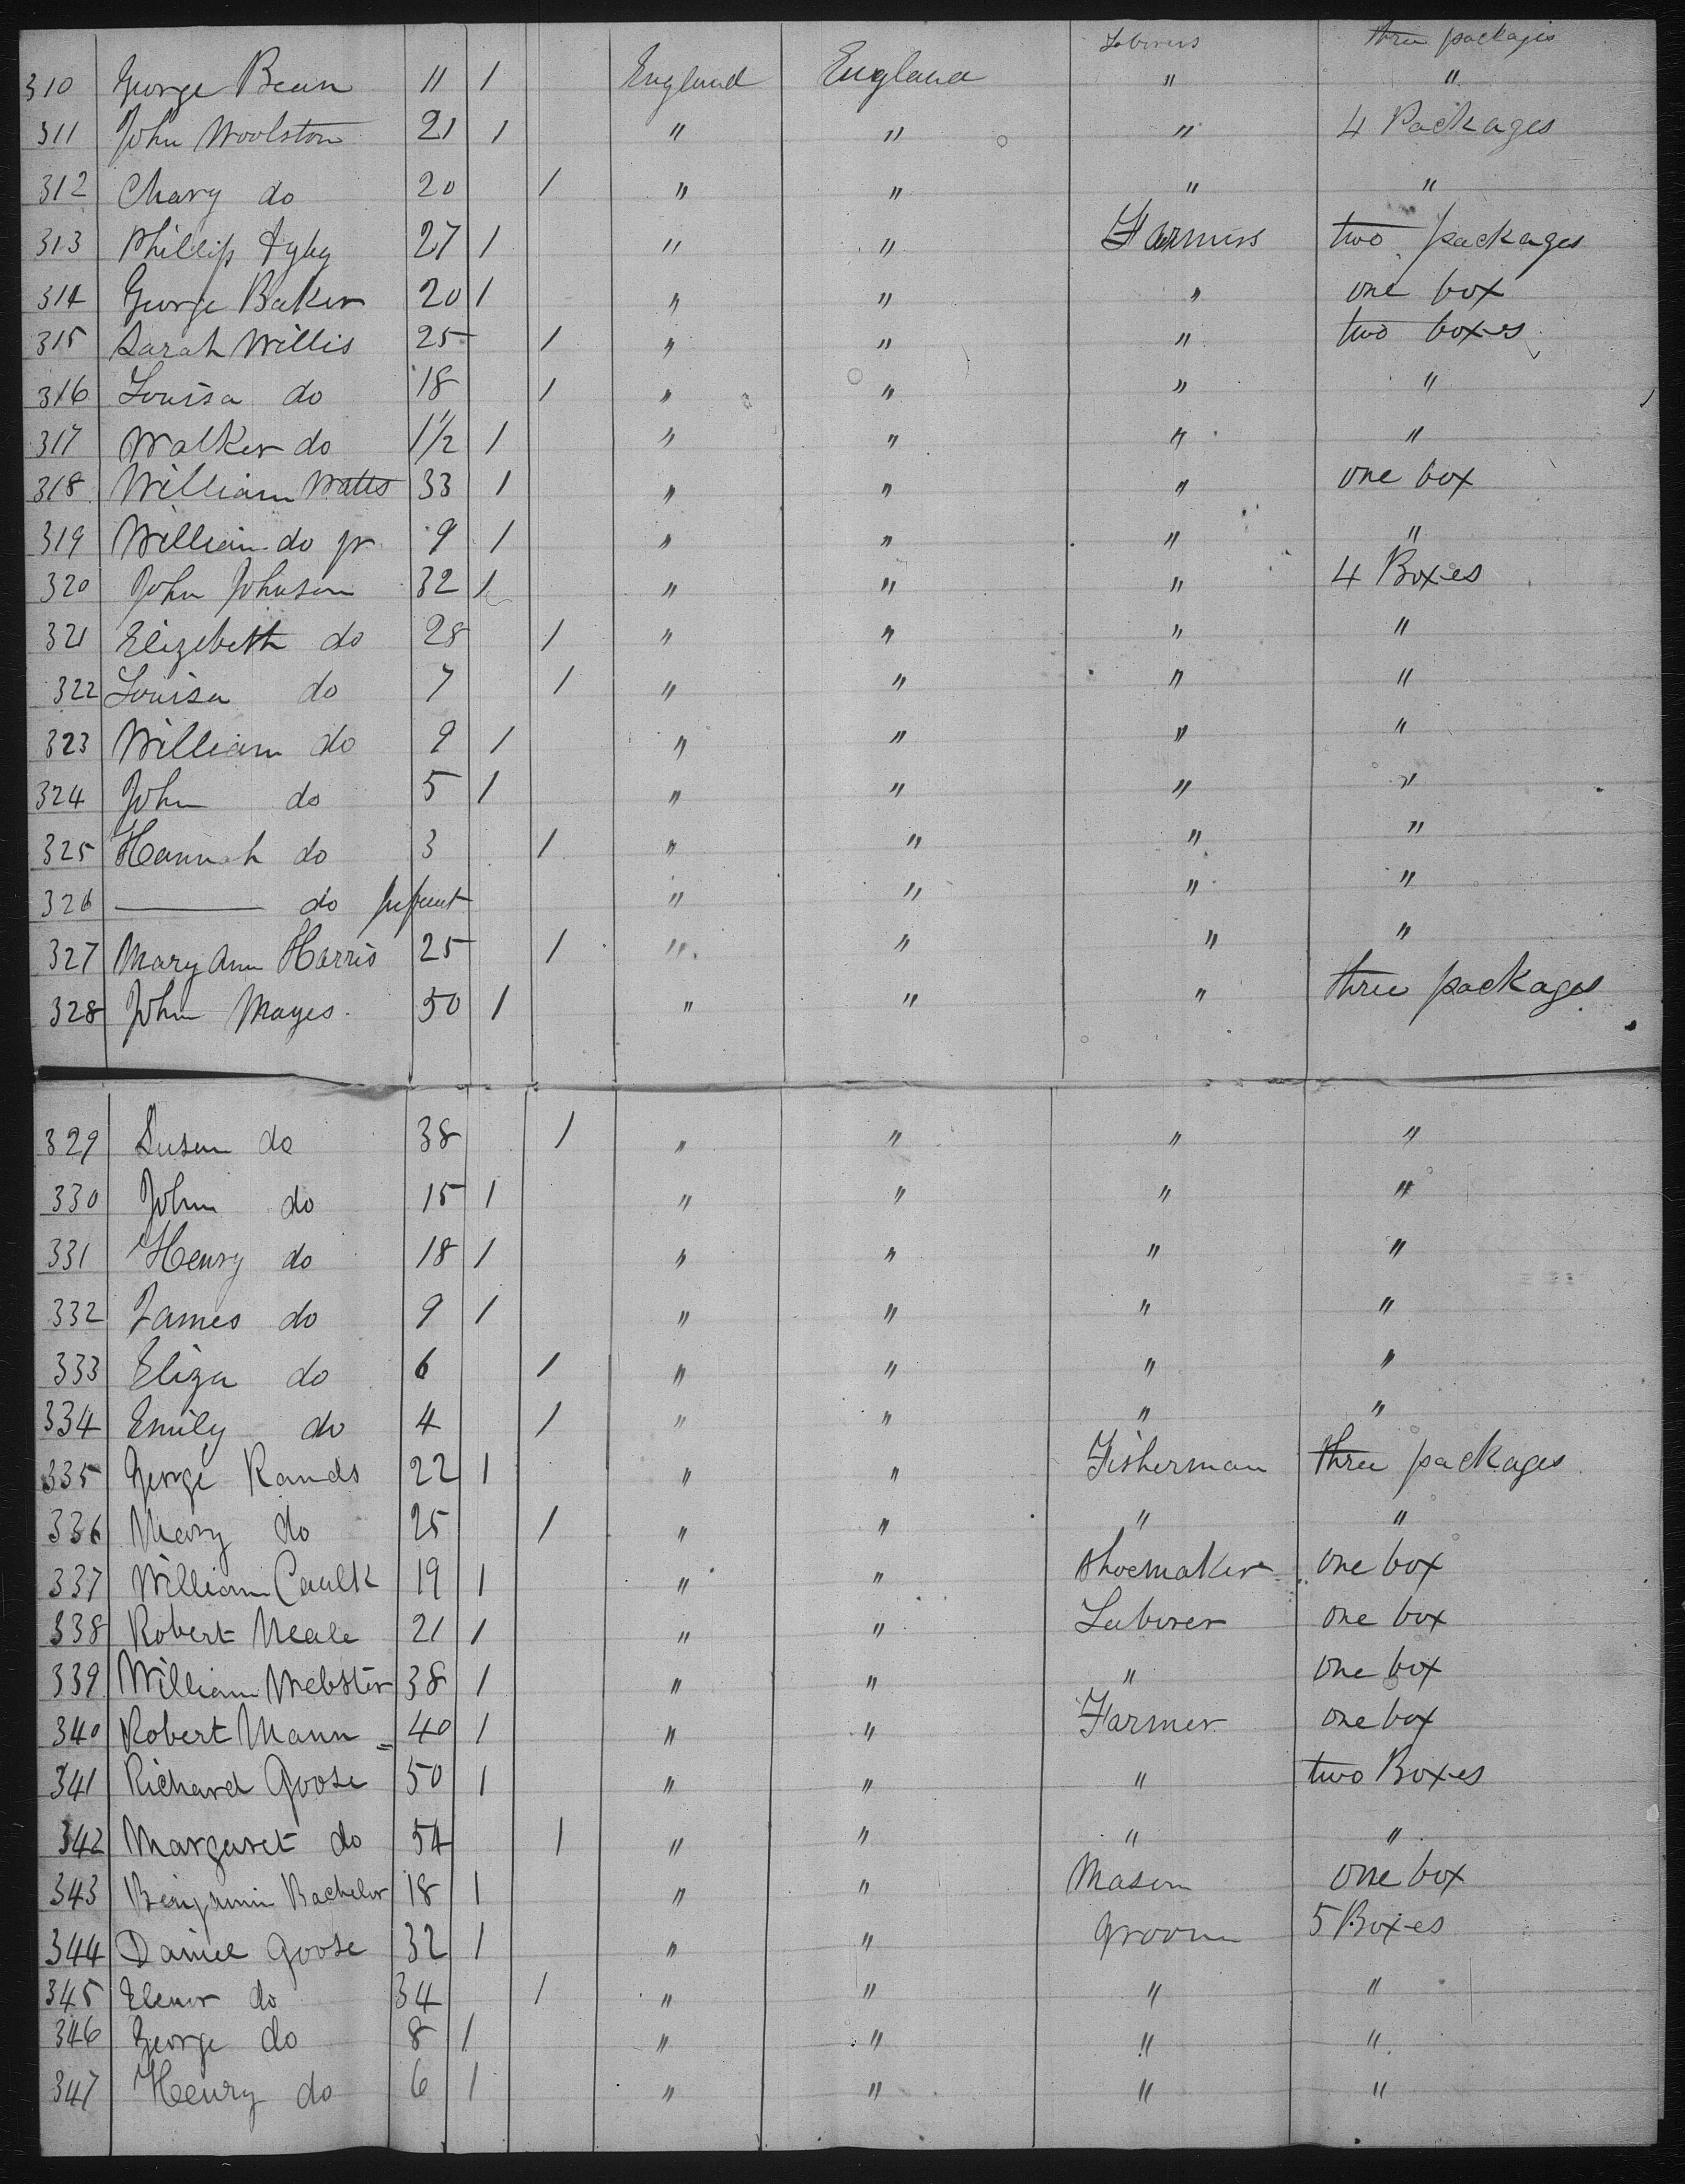 Laborers three packages
310 George Bean 11 1 England England " "
311 John Woolston 21 1 " " " 4 Packages
312 Mary do 20 1 " " " "
313 Phillip 27 1 " " Farmers two packages
314 George Baker 20 1 " " " one box
315 Sarah Willis 25 1 " " " two boxes
316 Louisa do 18 1 " " " "
317 Walker do 1½ 1 " " " "
318 William Watts 33 1 " " " one box
319 William do jr 9 1 " " " "
320 John Johnson 32 1 " " " 4 Boxes
321 Elizebeth do 28 1 " " " "
322 Louisa do 7 1 " " " "
323 William do 9 1 " " " "
324 John do 5 1 " " " "
325 Hannah do 3 1 " " " "
326 —— do Infant " " " "
327 Mary Ann Harris 25 1 " " " "
328 John Mayes 50 1 " " " three packages
329 Susan do 38 1 " " " "
330 John do 15 1 " " " "
331 Henry do 18 1 " " " "
332 James do 9 1 " " " "
333 Eliza do 6 1 " " " "
334 Emily do 4 1 " " " "
335 George Rands 22 1 " " Fisherman three packages
336 Mary do 25 1 " " " "
337 William Caulk 19 1 " " Shoemaker one box
338 Robert Neale 21 1 " " Laborer one box
339 William Webster 38 1 " " " one box
340 Robert Mann = 40 1 " " Farmer one box
341 Richard Goose 50 1 " " " two Boxes
342 Margaret do 54 1 " " " "
343 Benjamin Bachelor 18 1 " " Mason one box
344 Daniel Goose 32 1 " " Groom 5 Boxes
345 Elenor do 34 1 " " " "
346 George do 8 1 " " " "
347 Henry do 6 1 " " " "